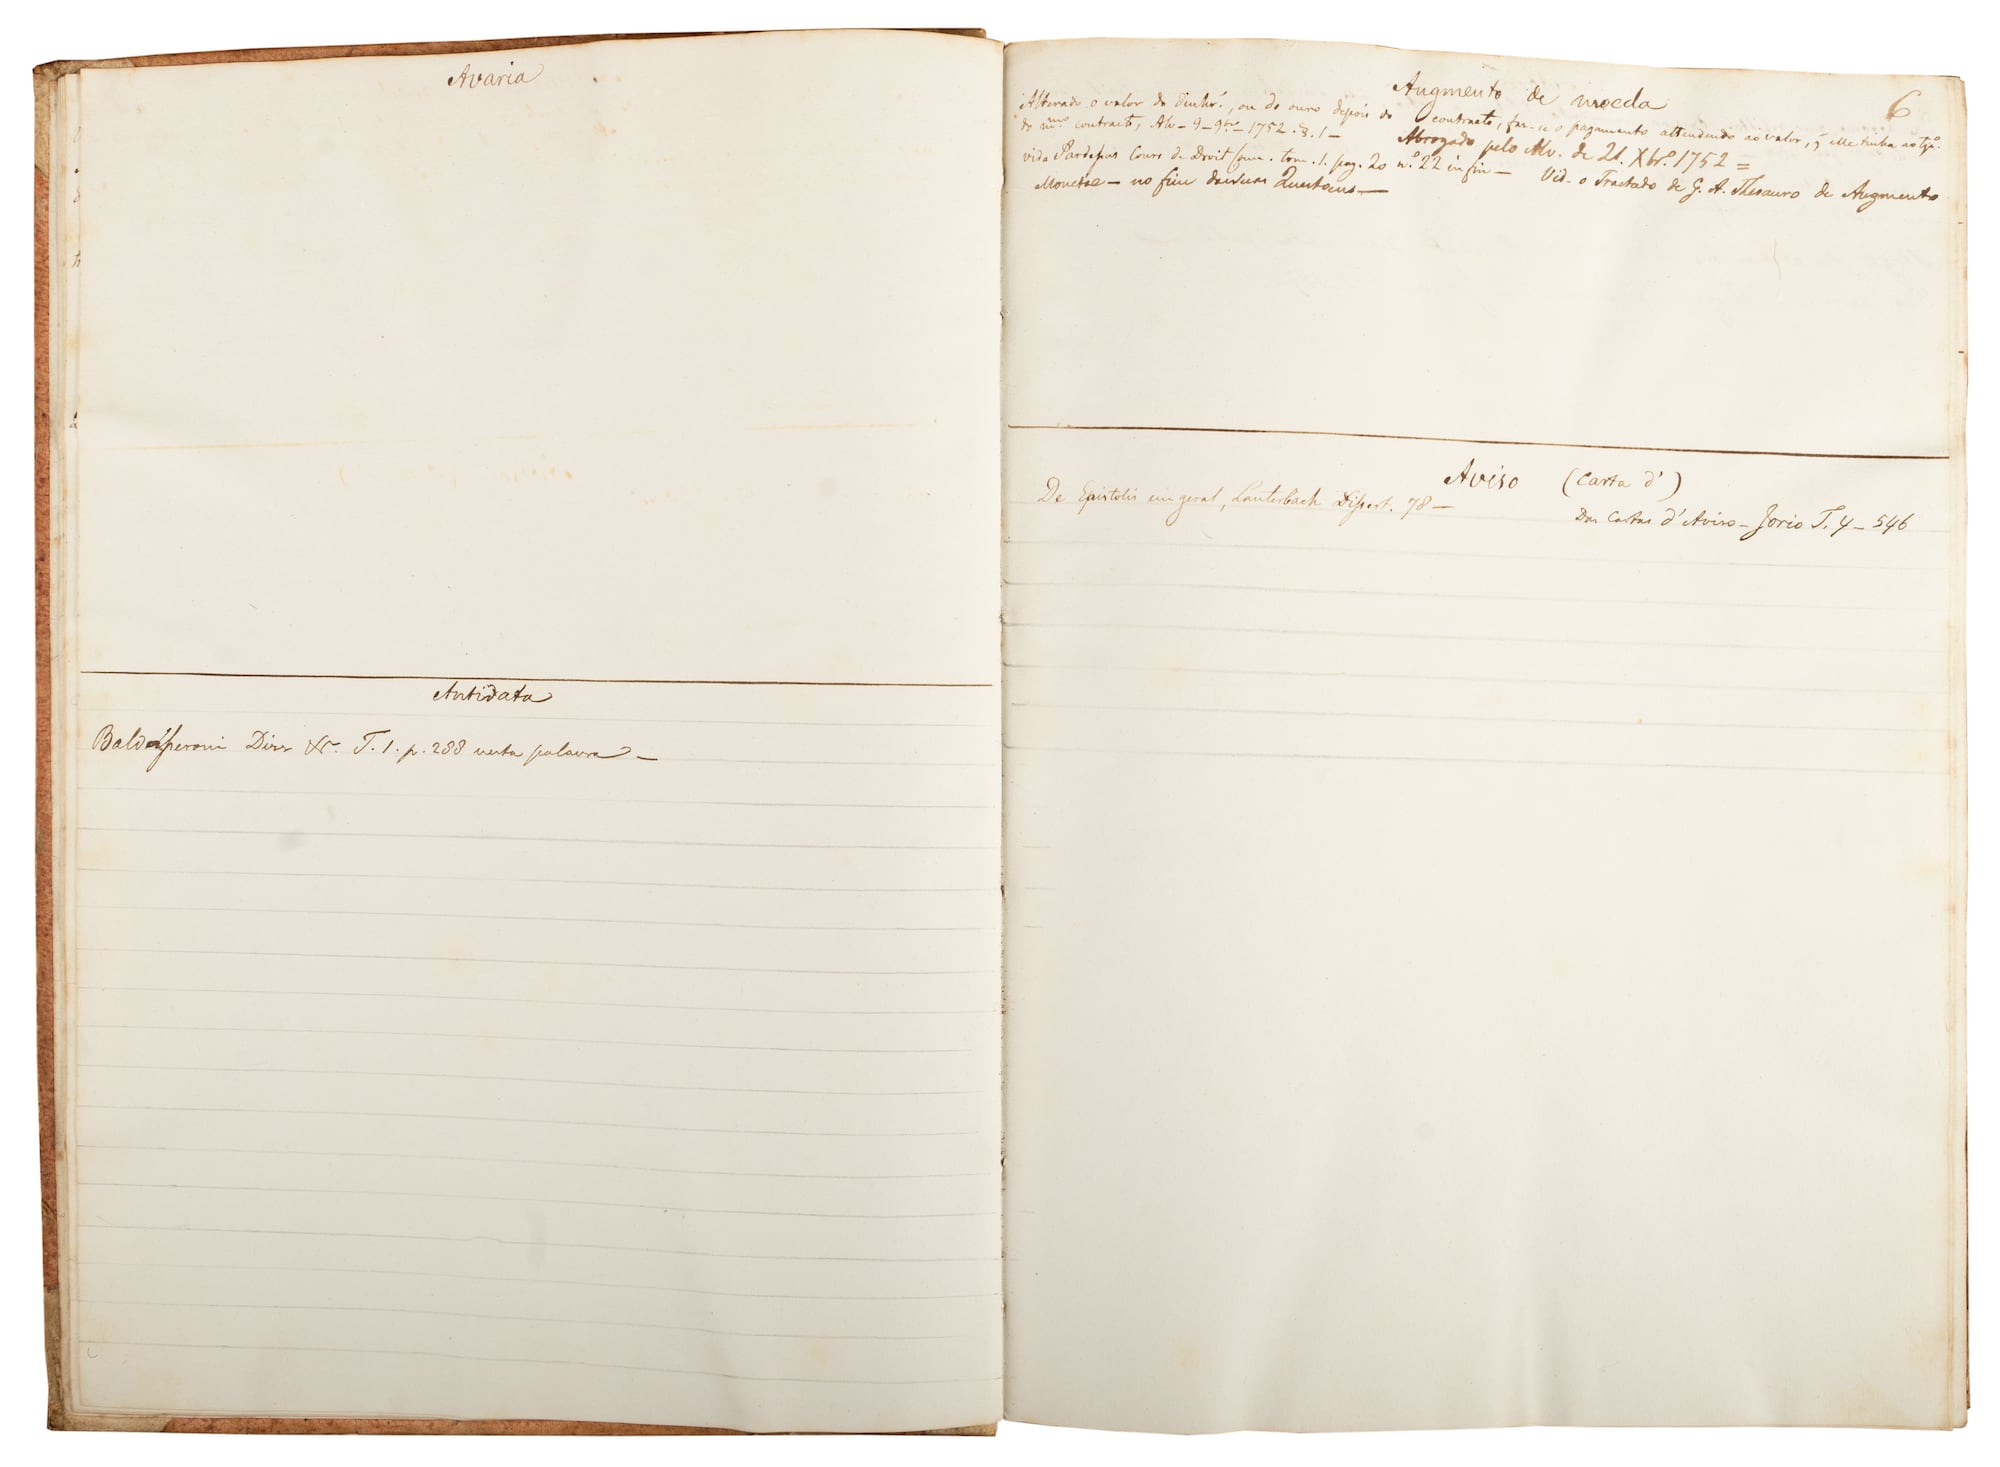 Avaria
Antidata
Baldasseroni Diss &c. T. 1. p. 288 nesta palavra —
6
Augmento de moeda
Alterado o valor do Dinhr.º, ou do ouro depois do contracto, far-se o pagamento attendendo ao valor, q̃ elle tinha ao tpº.
do mmº contracto, Alv - 9 - 9bro - 1752. §. 1 — Abrogado pelo Alv. de 21. Xbrº. 1752 =
vide Pardessus Cours de Droit Com. tom. 1. pag. 20 n.º 22 in fin — Vid. o Tractado de G. A. Thesauro de Augmento
Monetae — no fim das suas Questoens —
Aviso (Carta d')
De Epistolis em geral, Lauterbach Dissert. 78 —
Das Cartas d'Aviso — Jorio T. 4 — 546